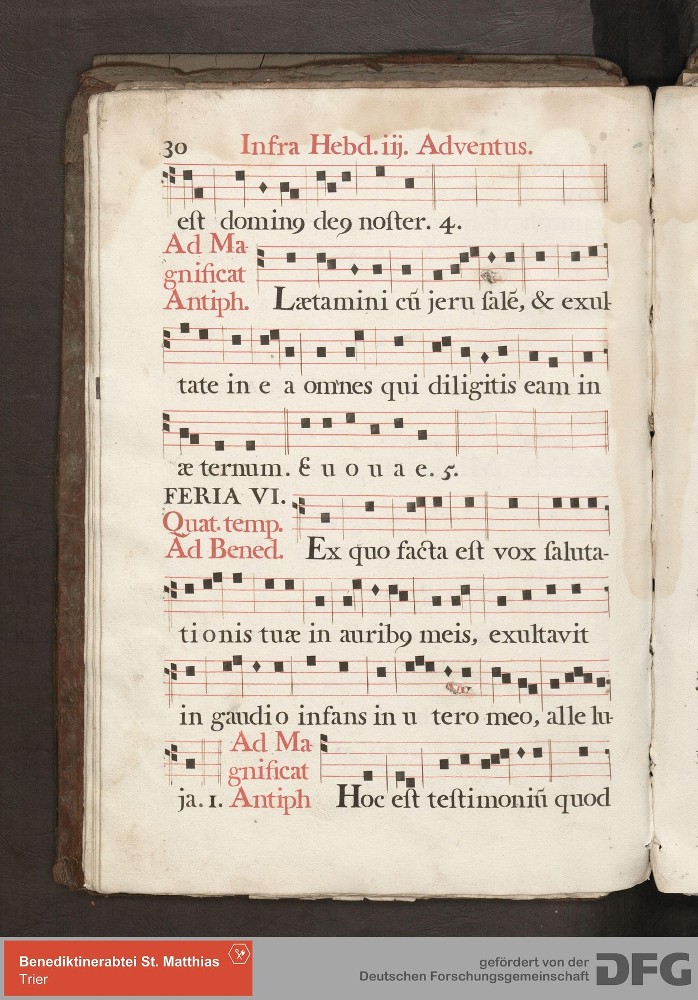 30 Infra Hebd. iij. Adventus.
est dominꝯ deꝯ noster. 4.
Ad Ma-
gnificat
Antiph. Lætamini cū jeru salē, & exul-
tate in e a omnes qui diligitis eam in
æ ternum. E u o u a e. 5.
FERIA VI.
Quat. temp.
Ad Bened. Ex quo facta est vox saluta-
tionis tuæ in auribꝯ meis, exultavit
in gaudio infans in u tero meo, alle lu-
ja. 1. Ad Ma-
gnificat
Antiph Hoc est testimoniū quod
Benediktinerabtei St. Matthias
Trier
gefördert von der
Deutschen Forschungsgemeinschaft
DFG